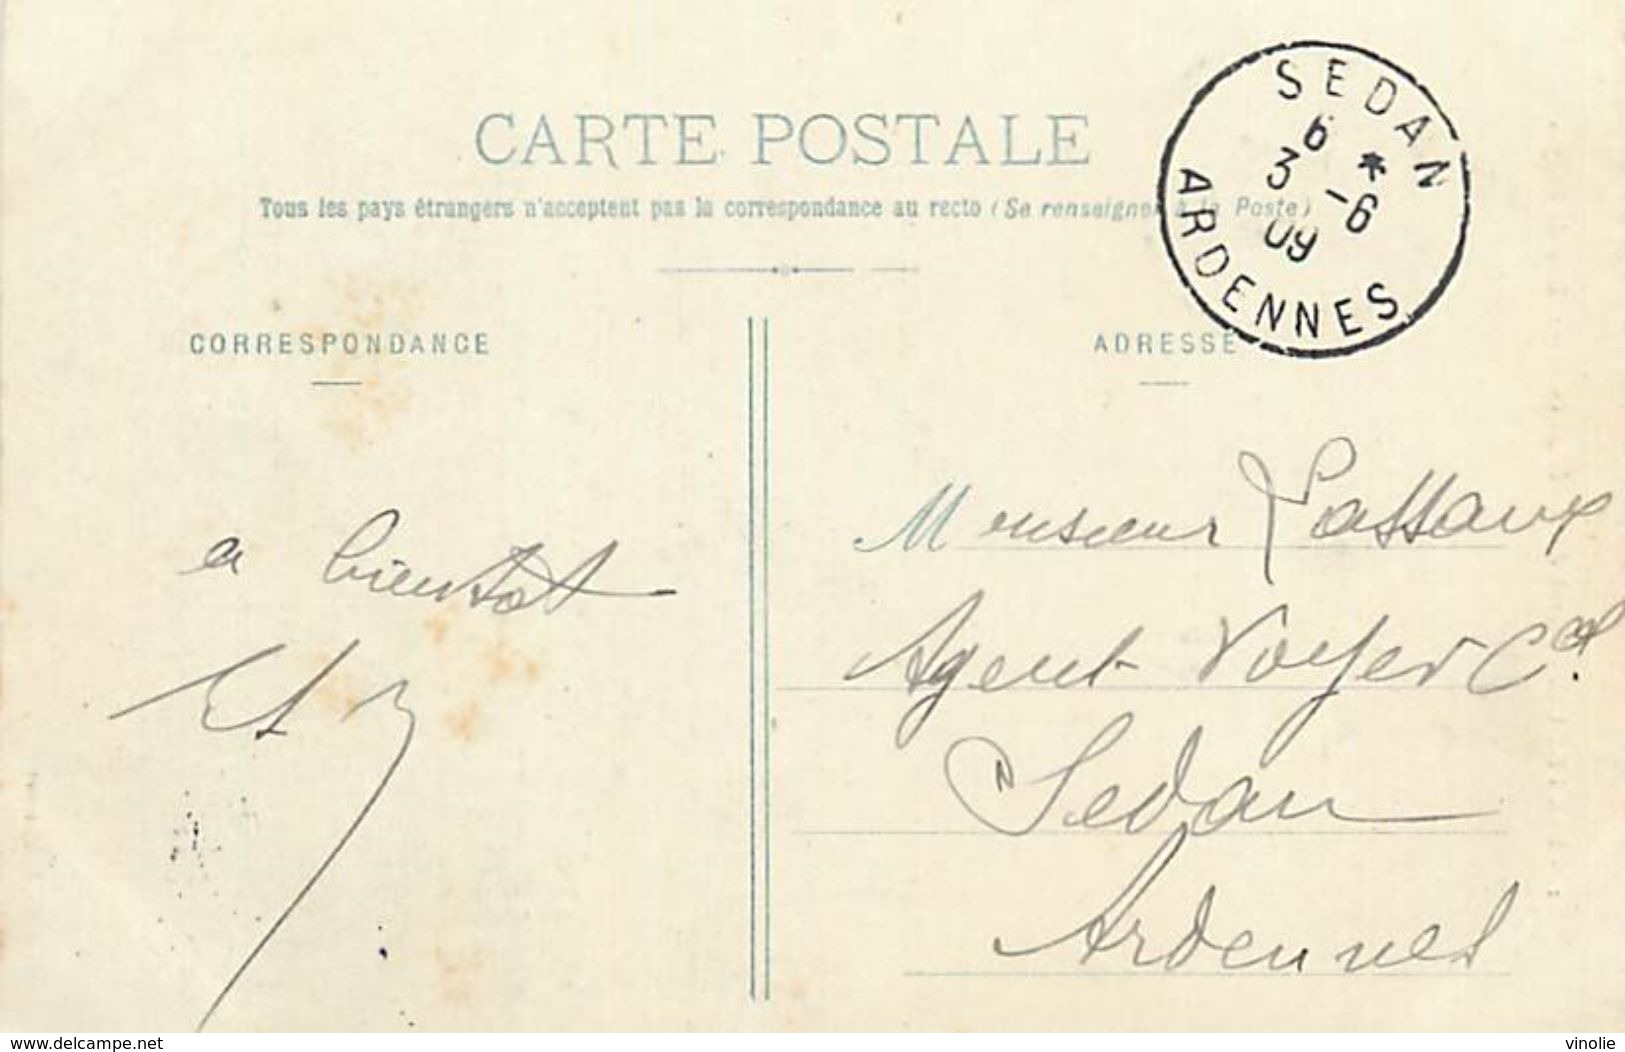 SEDAN
6 *
3 -6
09
ARDENNES
CARTE POSTALE
Tous les pays étrangers n'acceptent pas la correspondance au recto (Se renseigner à la Poste)
CORRESPONDANCE
ADRESSE
a bientot
Monsieur Passaux
Agent Voyer Cal
Sedan
Ardennes
www.delcampe.net
vinolie